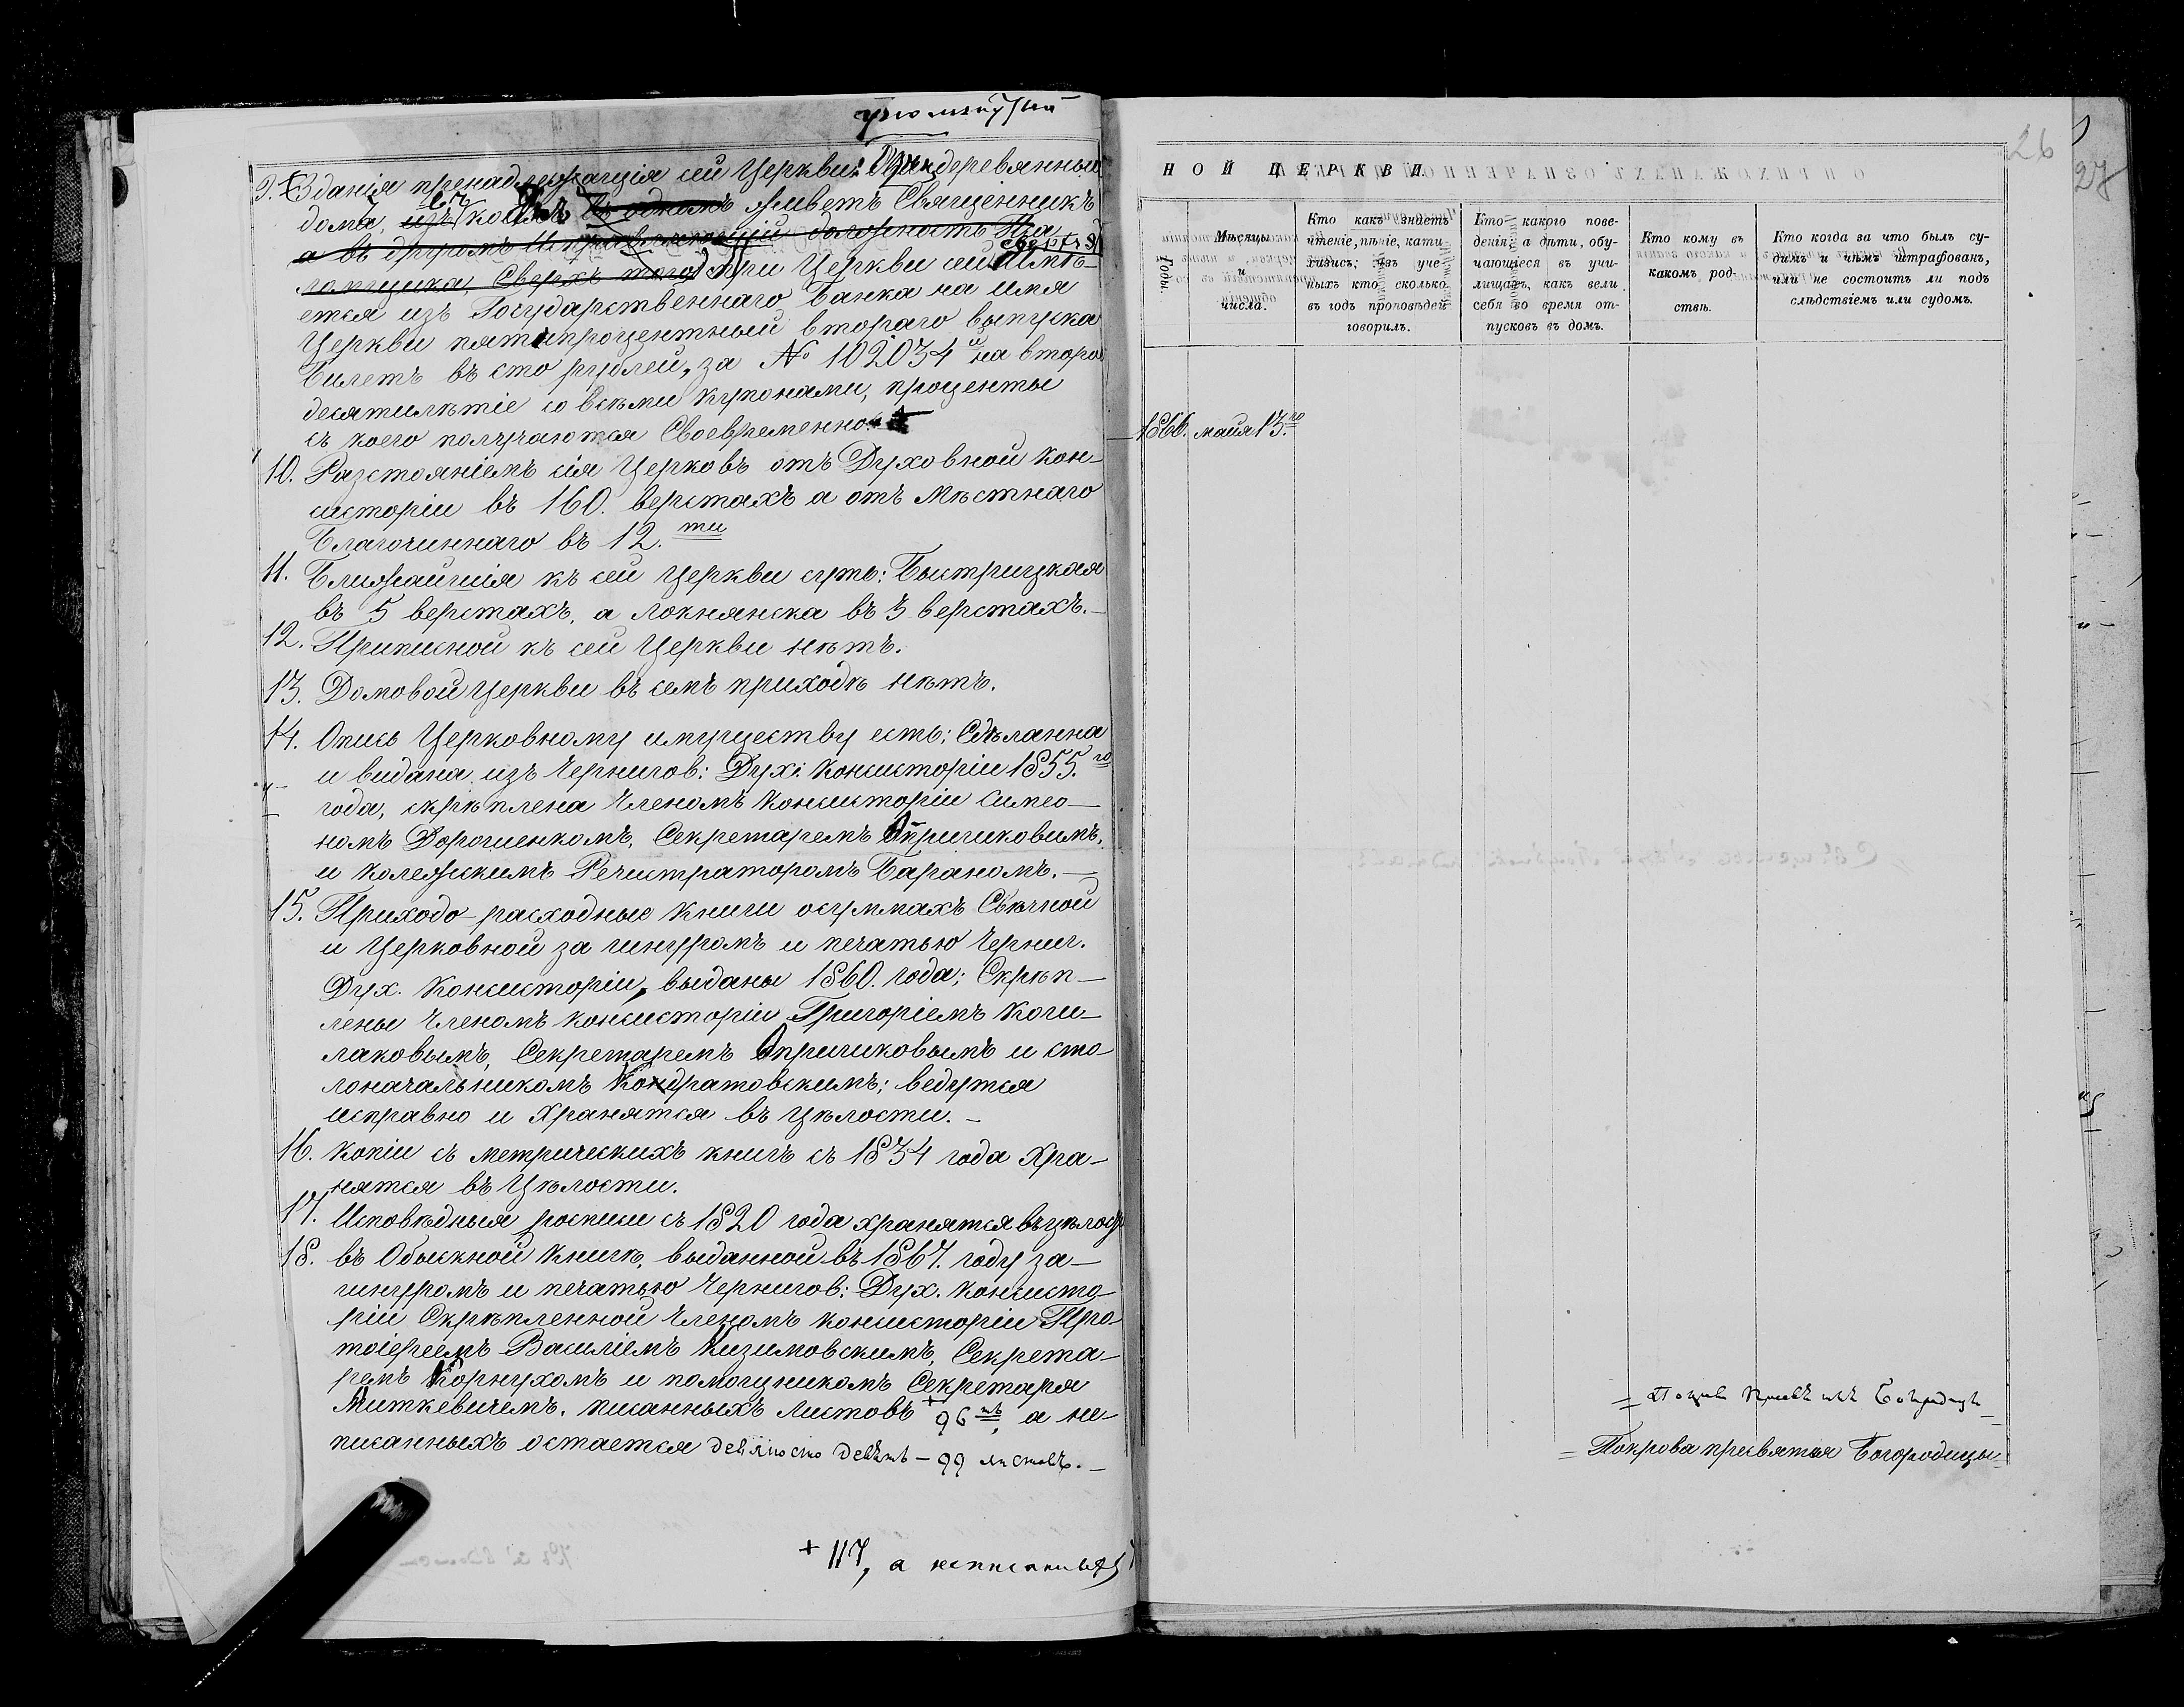 9. Зданія пренадлежащія сей Церкви: деревянный
дома, въ коемъ въ одномъ живетъ Священникъ
а въ другомъ Исправляющій должность Пса
ломщика, Сверхъ того при Церкви сей Имѣ-
ется изъ Государственнаго Банка на имя
Церкви пятипроцентный втораго выпуска
билетъ въ сто рублей, за № 102034 на второ
десятилѣтіе со всѣми купонами, проценты
съ коего получаются Своевременно.
10. Разстояніемъ сія Церковь отъ Духовной Кон-
систоріи въ 160. верстахъ а отъ Мѣстнаго
Благочиннаго въ 12.ти
11. Ближайшія къ сей Церкви суть: Быстрицкая
въ 5 верстахъ, а Локнянска въ 3 верстахъ.-
12. Приписной къ сей Церкви нѣтъ.
13. Домовой Церкви въ семъ приходѣ нѣтъ.
14. Опись Церковному имуществу есть; Сдѣланна
и видана изъ Чернигов: Дух: Консисторіи 1855.го
года, скрѣплена Членомъ Консисторіи Симео-
номъ Дорошенкомъ, Секретаремъ Опришковимъ,
и Колежскимъ Речистраторомъ Бараномъ.-
15. Приходо-расходные Книги осуммахъ Свѣчной
и Церковной за шнуромъ и печатью Черниг.
Дух. Консисторіи, выданы 1860. года; Скрѣп-
лены Членомъ Консисторіи Григоріемъ
Секретаремъ Опришковымъ и сто-
лоначальникомъ Кондратовскимъ; ведутся
исправно и Хранятся въ Цѣлости.-
16. Копіи съ метрическихъ книгъ съ 1834 года Хра-
нятся въ Цѣлости.
17. Исповѣдныя росписи съ 1820 года хранятся въ цѣлос
18. въ Обыскной Книгѣ, выданной въ 1867. году за-
шнуромъ и печатью Чернигов: Дух. Консисто-
ріи Скрѣпленной Членомъ Консисторіи Про-
тоіереемъ Василіемъ Кизимовскимъ, Секрета-
ремъ Корнухомъ и помощникомъ Секретаря
Миткевичемъ. писанныхъ листовъ + 96 ть, а не-
писанныхъ остается девяносто девять - 99 листовъ.-
+ 117, а неписаны
26
27
НОЙ ЦЕРКВИ
Годы.
Мѣсяцы и числа.
Кто какъ знаетъ чтеніе, пѣніе, катихизисъ; изъ ученыхъ кто сколько въ годъ проповѣдей говорилъ.
Кто какого поведенія; а дѣти, обучающіеся въ училищахъ, какъ вели себя во время отпусковъ въ домъ.
Кто кому въ какомъ родствѣ.
Кто когда за что былъ судимъ и чѣмъ штрафованъ, или не состоитъ ли подъ слѣдствіемъ или судомъ.
1866. майя 13.го
= Покрова пресвятыя Богородицы=